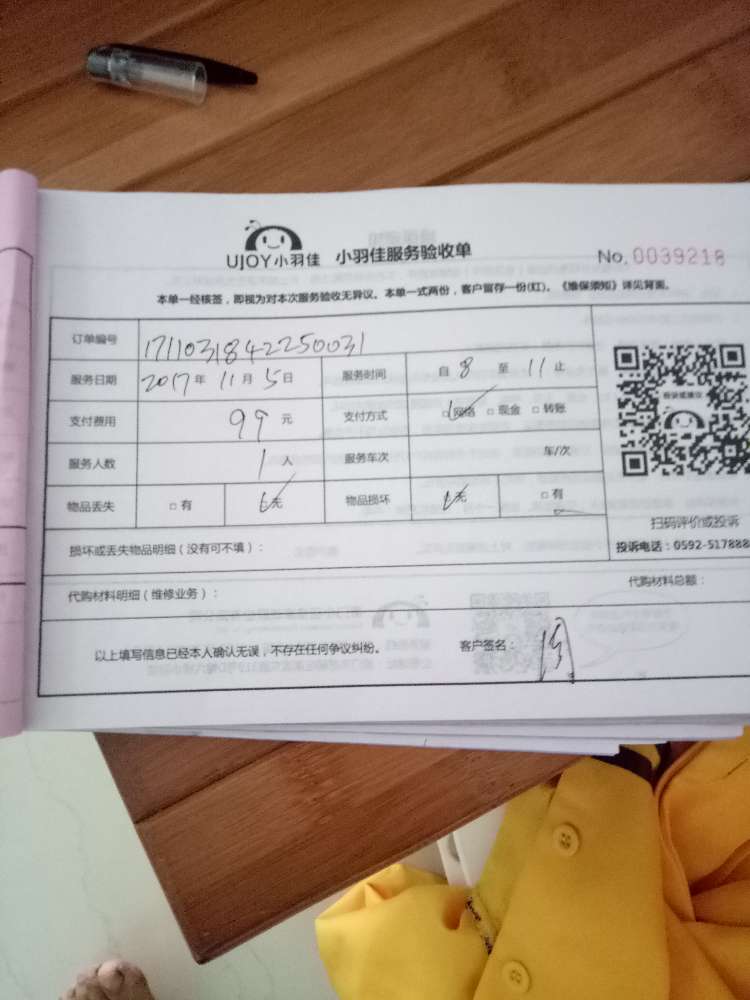 UJOY小羽佳 小羽佳服务验收单 No. 0039218
本单一经核签，即视为对本次服务验收无异议。本单一式两份，客户留存一份(红)。《维保须知》详见背面。
订单编号 1711031842250031
服务日期 2017年 11月 5日 服务时间 自 8 至 11 止
支付费用 99 元 支付方式 □网络 □现金 □转账
服务人数 1人 服务车次 车/次
物品丢失 □有 □无 物品损坏 □无 □有
扫码评价或投诉
损坏或丢失物品明细（没有可不填）： 投诉电话：0592-517888
代购材料明细（维修业务）： 代购材料总额：
以上填写信息已经本人确认无误，不存在任何争议纠纷。 客户签名：